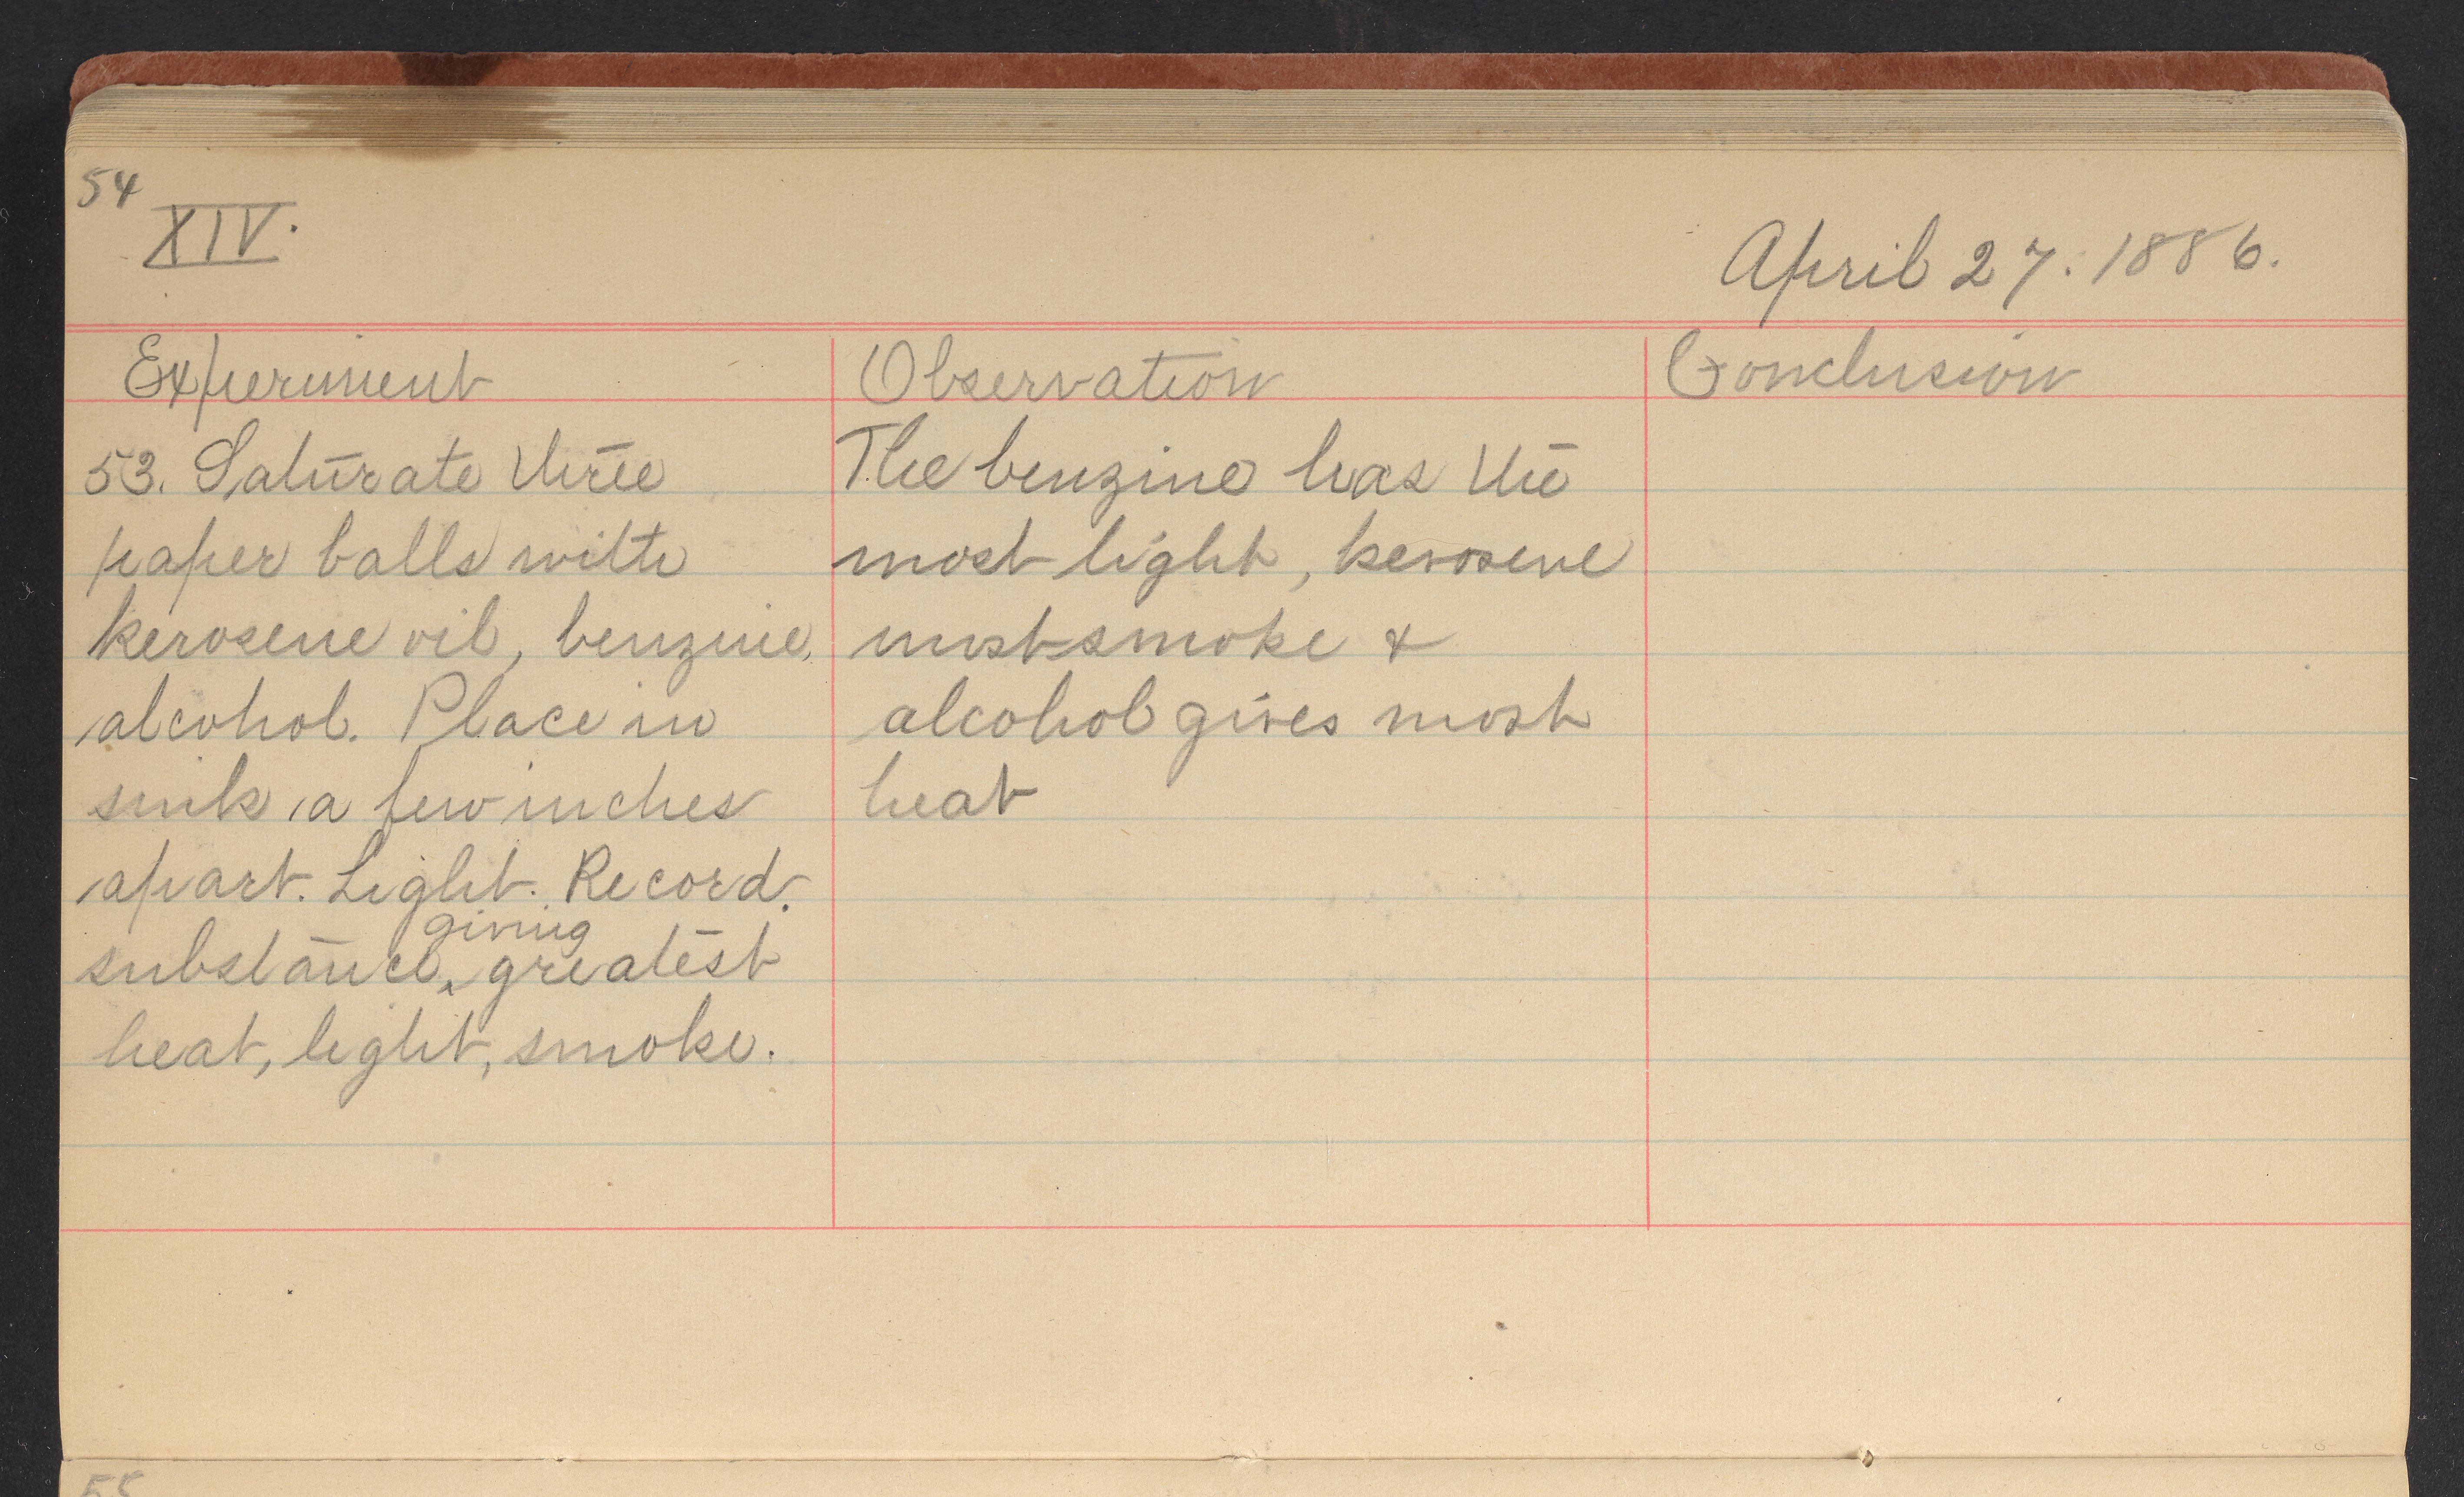 54
XIV.
April 27. 1886.
Experiment
53. Saturate three
paper balls with
kerosene oil, benzine,
alcohol. Place in
sink a few inches
apart. Light. Record.
giving
substance ‸ greatest
heat, light, smoke.
Observation
The benzine has the
most light, kerosene
most smoke &
alcohol gives most
heat
Conclusion